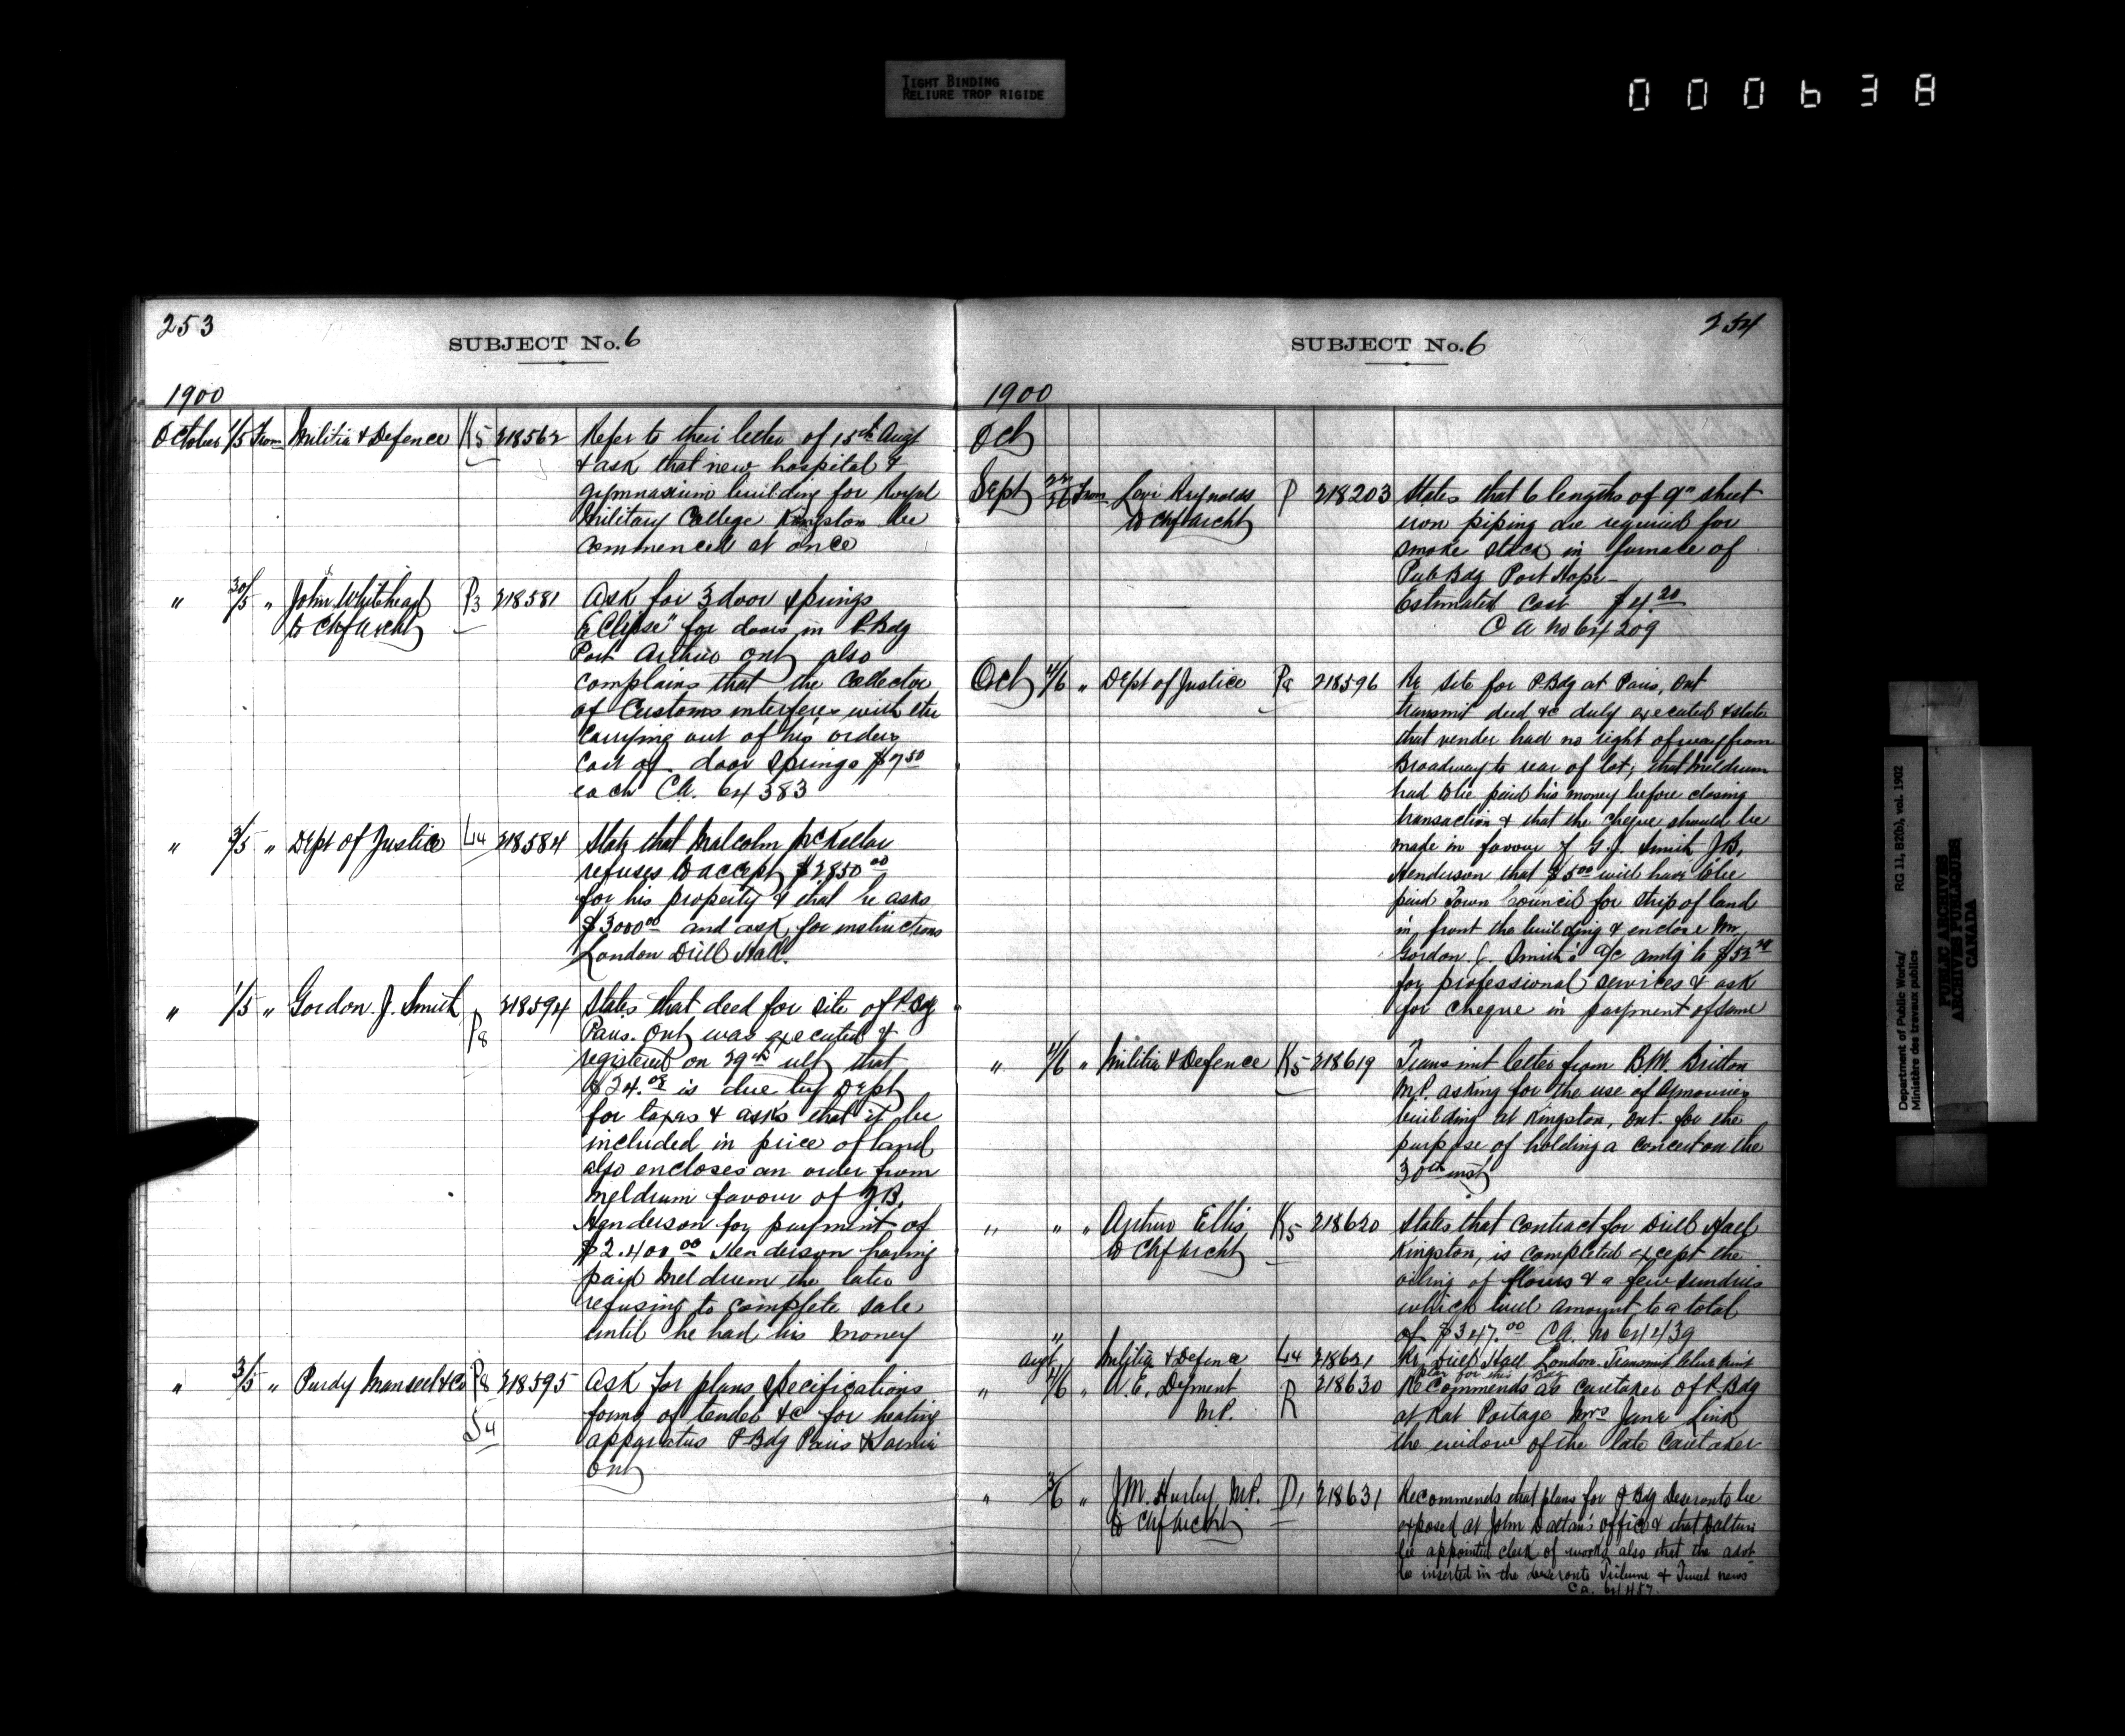 TIGHT BINDING
RELIURE TROP RIGIDE
000638
253
SUBJECT No. 6
1900
October 1/5 From Militia & Defence K5 218562 Refer to their letter of 15th Augt
& ask that new hospital &
gymnasium building for Royal
Military College Kingston be
commenced at once
" 30/5 " John Whitehead P3 218581 Ask for 3 door springs
to Chf Archt "Eclipse" for doors in P. Bdg
Port Arthur Ont also
complains that the Collector
of Customs interferes with the
carrying out of his orders
cost of door springs $7.50
each CA. 64383
" 3/5 " Dept of Justice L14 218584 State that Malcolm McKellar
refuses to accept $2850.00
for his property & that he asks
$3000.00 and ask for instructions
London Drill Hall.
" 1/5 " Gordon. J. Smith P8 218594 States that deed for site of P. Bdg
Paris. Ont was executed &
registered on 29th ult that
$24. is due by Dept
for taxes & asks that it be
included in price of land
also encloses an order from
Meldrum favour of J.B.
Henderson for payment of
$2.400.00 Henderson having
paid Meldrum the later
refusing to complete sale
until he had his money
" 3/5 " Purdy Mansell & Co P8 218595 Ask for plans specifications
S4 forms of tender &c for heating
apparatus P. Bdg Paris & Sarnia
Ont
254
SUBJECT No. 6
1900
Oct
Sept From Levi Reynolds P 218203 States that 6 lengths of 9" sheet
to Chf Archt iron piping are required for
smoke stack in furnace of
Pub Bdg Port Hope –
Estimated cost $4.20
CA no 64209
Oct 4/6 " Dept of Justice P8 218596 Re site for P. Bdg at Paris, Ont
transmit deed &c duly executed & state
that vender had no right of way from
Broadway to rear of lot, that Meldrum
had to be paid his money before closing
transaction & that the cheque should be
made in favour of G.J. Smith J.B.
Henderson that $5.00 will have to be
paid Town Council for strip of land
in front the building & enclose Mr.
Gordon. J. Smith's a/c amtg to $52
for professional services & ask
for cheque in payment of same
" 4/6 " Militia & Defence K5 218619 Transmit letter from B.M. Britton
M.P. asking for the use of Armouries
building at Kingston, Ont. for the
purpose of holding a concert on the
30th inst
" " " Arthur Ellis K5 218620 States that contract for Drill Hall
to Chf Archt Kingston, is completed except the
oiling of floors & a few sundries
which will amount to a total
of $347.00 CA. no 64439
" Augt Militia & Defence L14 218621 Re, Drill Hall London. Transmit blue print
plan for this Bdg
" 4/6 " A. E. Dyment R 218630 Recommends as caretaker of P. Bdg
M.P. at Rat Portage Mrs Jane Link
the widow of the late Caretaker
" 3/6 " J.M. Hurley M.P. D1 218631 Recommends that plans for P. Bdg Deseronto be
to Chf Archt exposed at John Dalton's office & that Dalton
be appointed clerk of works also that the advt
be inserted in the Deseronto Tribune & Tweed news
CA. 64457.
Department of Public Works/ RG 11, B2(b), vol. 1902
Ministère des travaux publics
PUBLIC ARCHIVES
ARCHIVES PUBLIQUES
CANADA